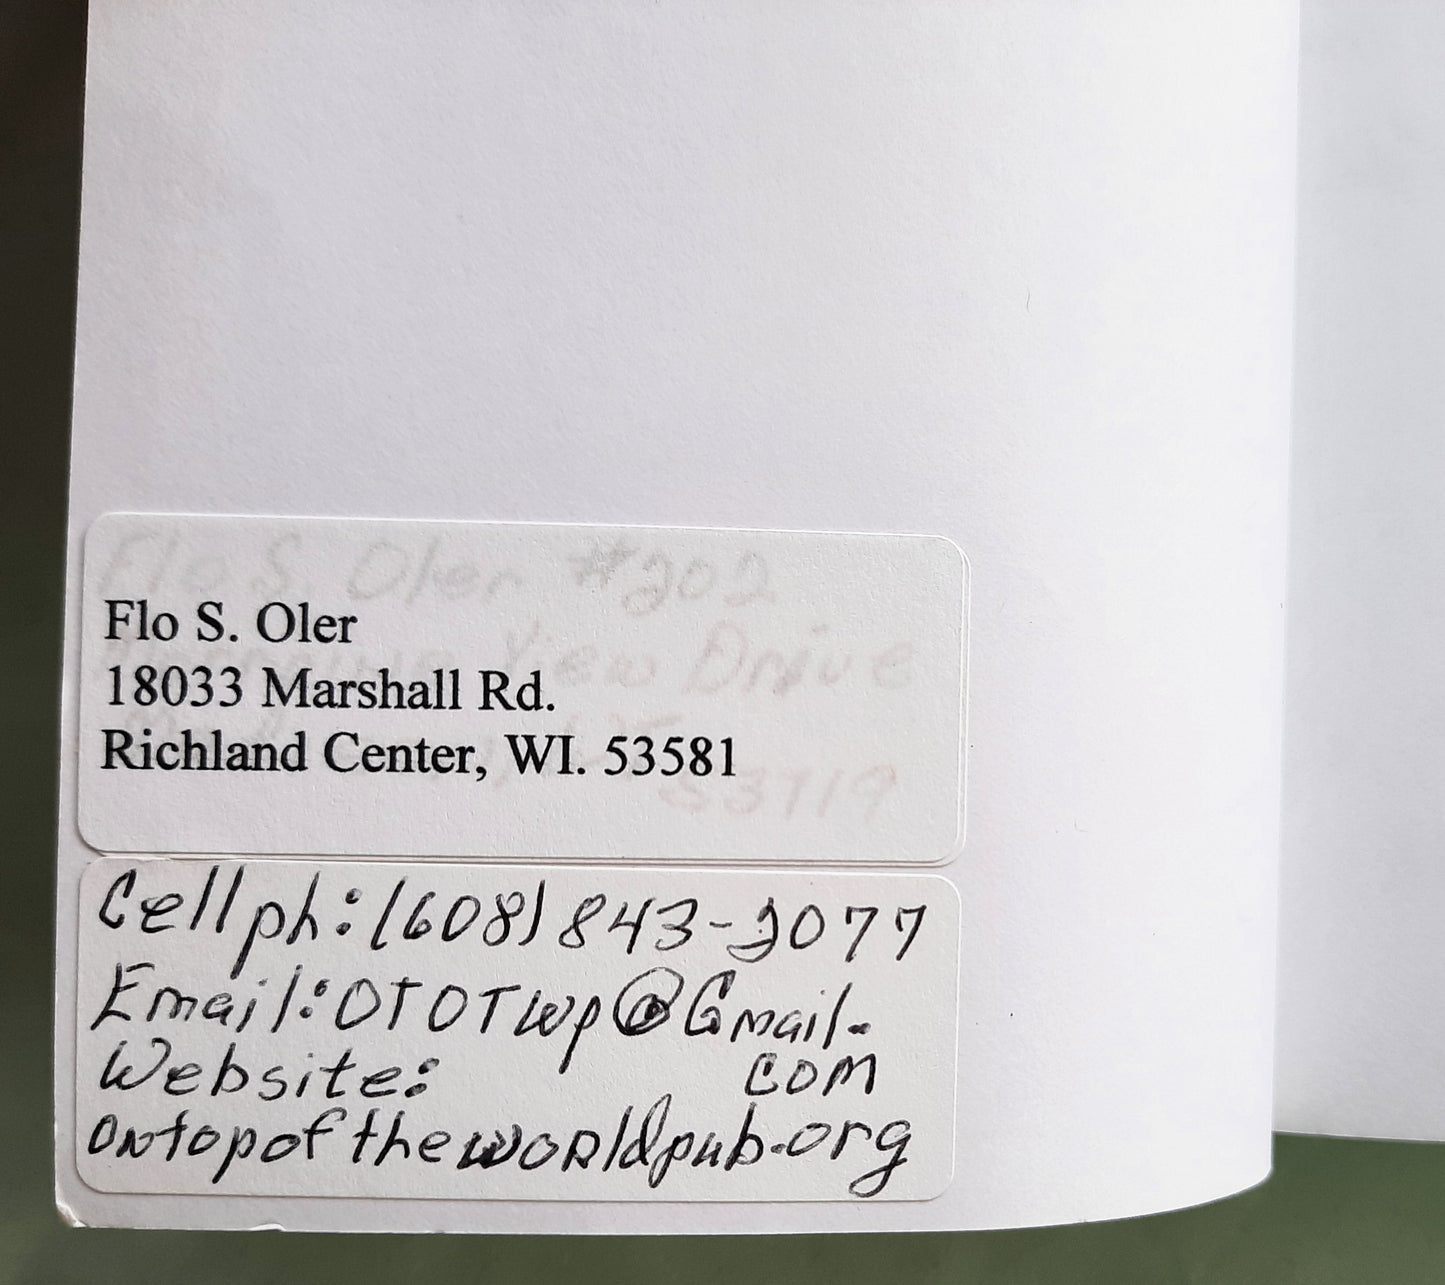 Flo S. Oler #202
View Drive
53719
Flo S. Oler
18033 Marshall Rd.
Richland Center, WI. 53581
Cell ph: (608) 843-2077
Email: OTOTWp@Gmail.
com
Website:
ontopoftheworldpub.org